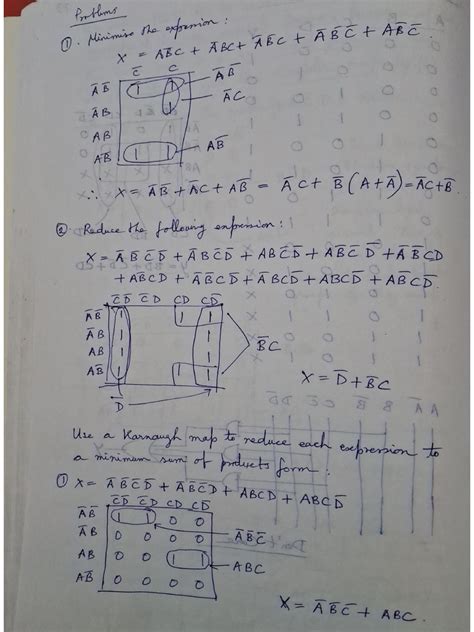 Problems
①. Minimise the expression :
X = AB̅C + A̅BC + A̅B̅C + A̅B̅C̅ + AB̅C̅.
C̅ C
A̅B̅ 1 1 A̅B̅
A̅B 1 A̅C
AB
AB̅ 1 1 AB̅
∴ X = A̅B̅ + A̅C + AB̅ = A̅C + B̅(A+A̅) = A̅C+B̅.
② Reduce the following expression :
X = A̅B̅C̅D̅ + A̅BC̅D̅ + ABC̅D̅ + AB̅C̅D̅ + A̅B̅CD
+ AB̅CD + A̅B̅CD̅ + A̅BCD̅ + ABCD̅ + AB̅CD̅.
C̅D̅ C̅D CD CD̅
A̅B̅ 1 1 1
A̅B 1 1
AB 1 1
AB̅ 1 1 1
B̅C
D̅
X = D̅ + B̅C
Use a Karnaugh map to reduce each expression to
a minimum sum of products form.
① X = A̅B̅C̅D̅ + A̅B̅C̅D + ABCD + ABCD̅
C̅D̅ C̅D CD CD̅
A̅B̅ 1 1 0 0
A̅B 0 0 0 0 A̅B̅C̅
AB 0 0 1 1 ABC
AB̅ 0 0 0 0
X = A̅B̅C̅ + ABC.